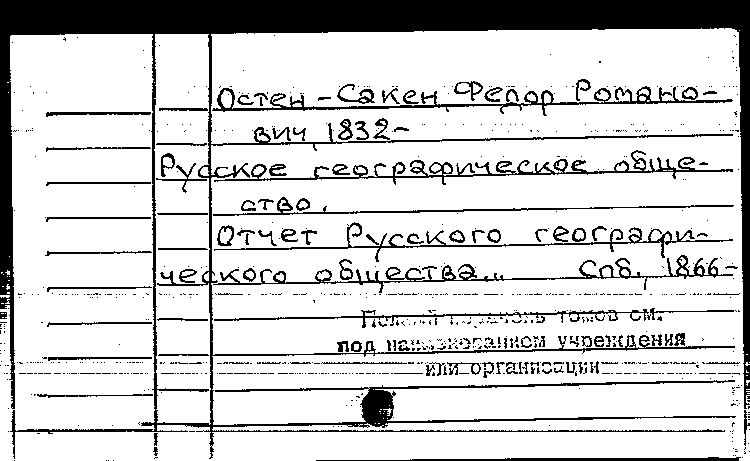 Остен-Сакен, Федор Романо-
вич, 1832-
Русское географическое обще-
ство.
Отчет Русского географи-
ческого общества... Спб., 1866-
Полный перечень томов см.
под наименованием учреждения
или организации